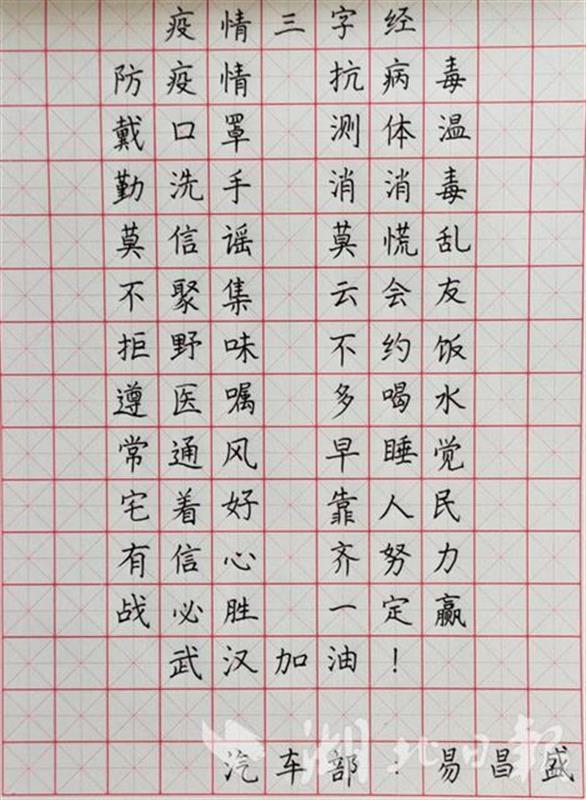 疫情三字经
防疫情 抗病毒
戴口罩 测体温
勤洗手 消消毒
莫信谣 莫慌乱
不聚集 云会友
拒野味 不约饭
遵医嘱 多喝水
常通风 早睡觉
宅着好 靠人民
有信心 齐努力
战必胜 一定赢
武汉加油!
湖北日报
汽车部:易昌盛